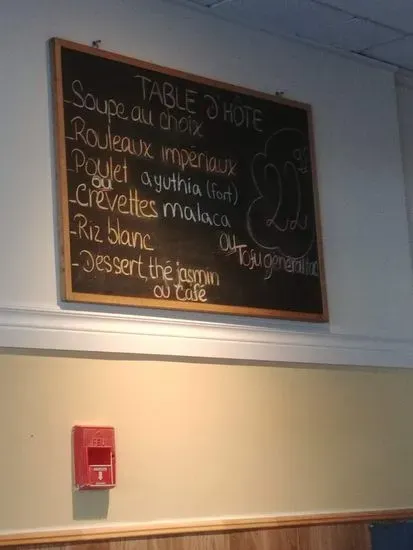 TABLE D'HÔTE
-Soupe au choix
-Rouleaux impériaux
-Poulet ayuthia (fort)
ou
-Crevettes malaca
-Riz blanc
ou Tofu général tao
-Dessert, thé jasmin
ou café
22
FEU